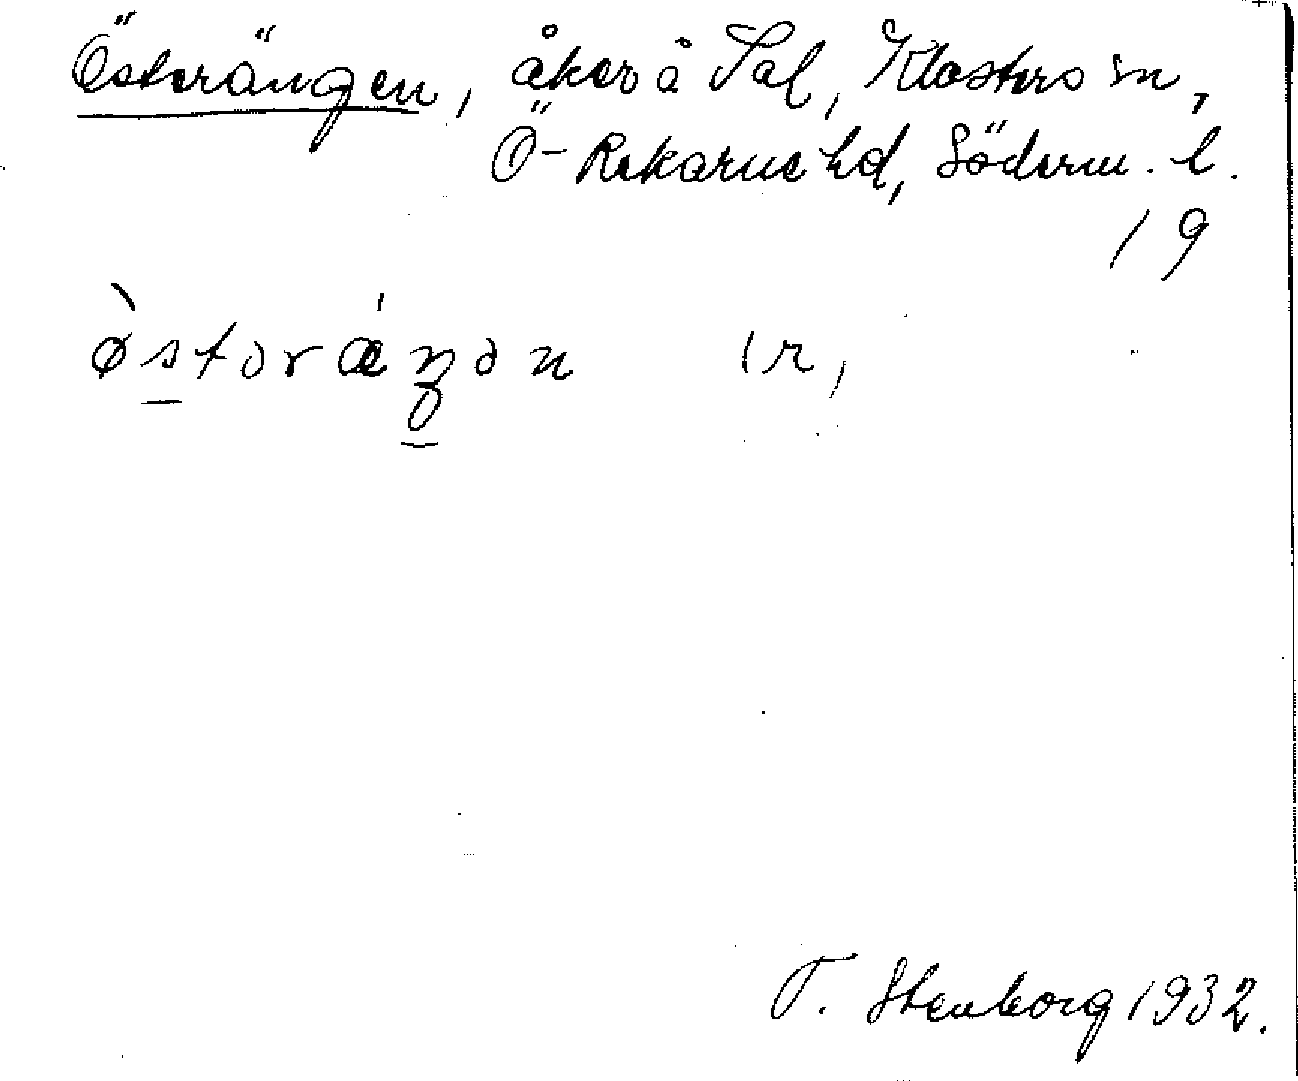 Österängen, åker å Sal, Klosters sn,
Ö-Rekarne hd, Söderm. l.
19
ø̀stərǽŋən ir,
T. Stenborg 1932.